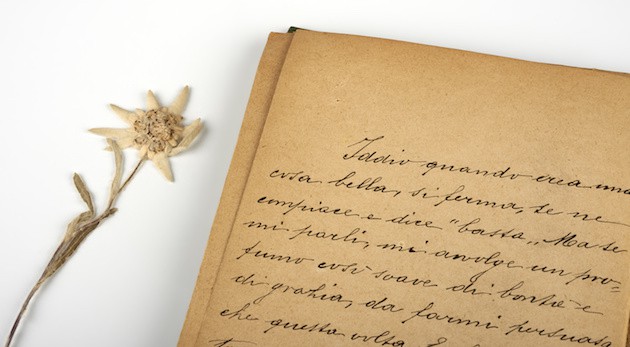 Iddio quando crea una
cosa bella, si ferma, se ne
compiace e dice "basta„ Ma se
mi parli, mi avvolge un pro-
fumo così soave di bontà e
di grazia, da farmi persuasa
che questa volta